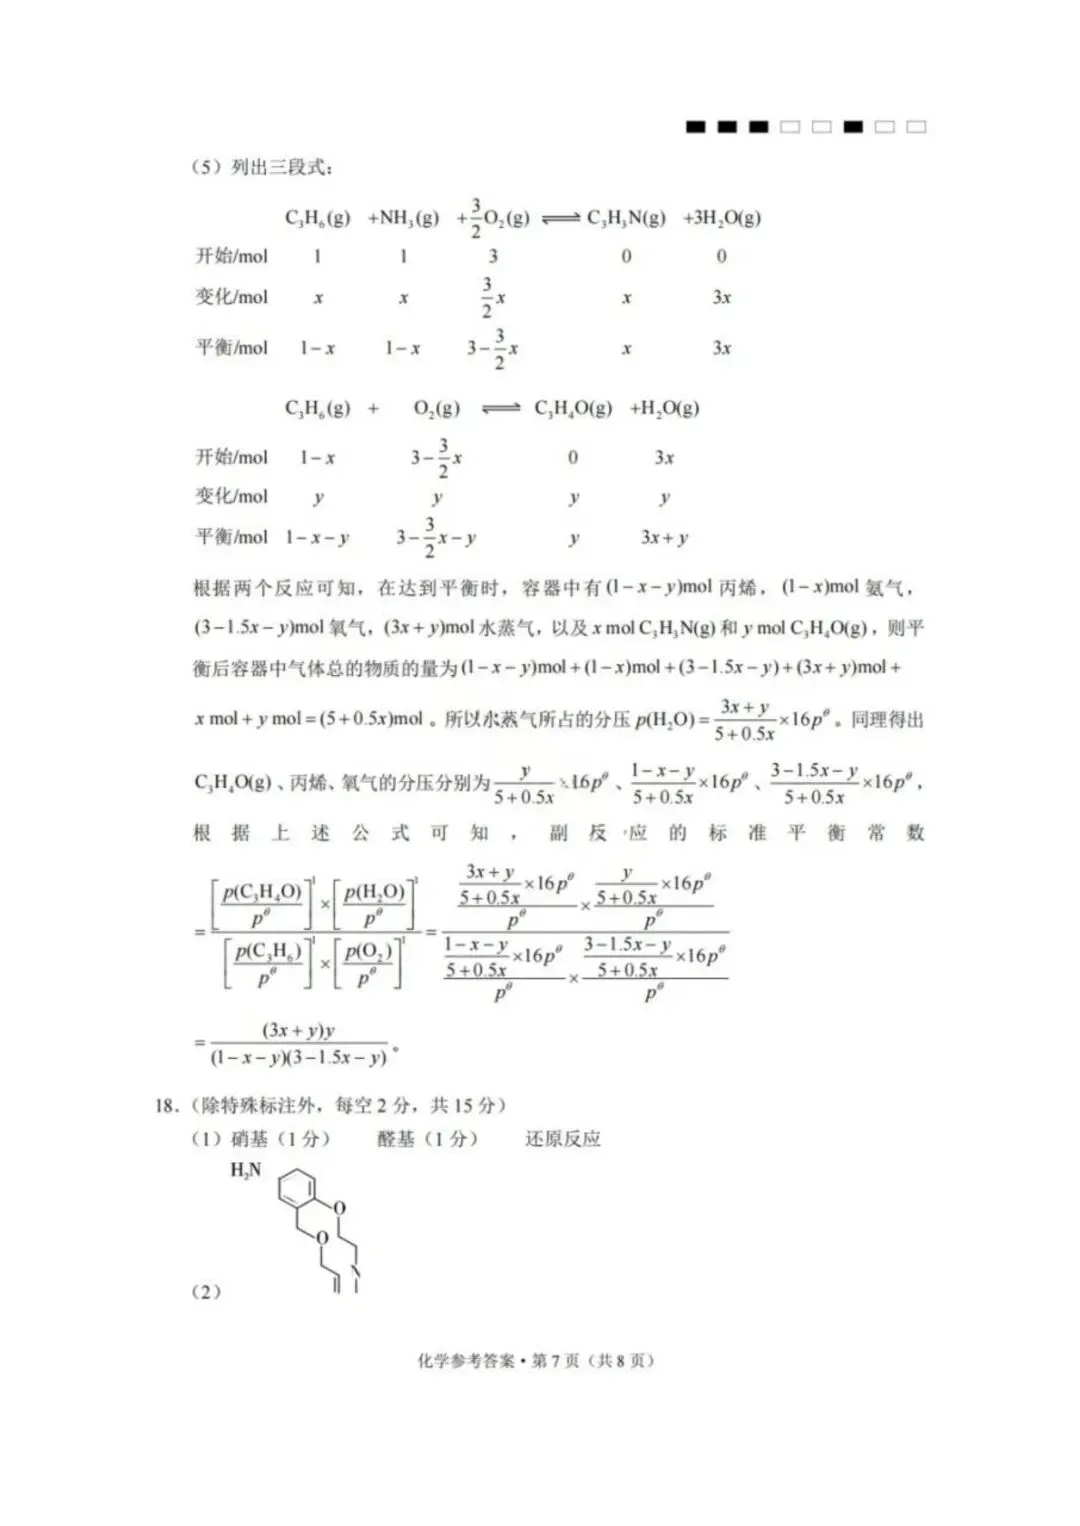 （5）列出三段式：
C₃H₆(g) +NH₃(g) +3/2O₂(g) ⇌ C₃H₃N(g) +3H₂O(g)
开始/mol 1 1 3 0 0
变化/mol x x 3/2x x 3x
平衡/mol 1−x 1−x 3−3/2x x 3x
C₃H₆(g) + O₂(g) ⇌ C₃H₄O(g) +H₂O(g)
开始/mol 1−x 3−3/2x 0 3x
变化/mol y y y y
平衡/mol 1−x−y 3−3/2x−y y 3x+y
根据两个反应可知，在达到平衡时，容器中有(1−x−y)mol丙烯，(1−x)mol氨气，
(3−1.5x−y)mol氧气，(3x+y)mol水蒸气，以及x mol C₃H₃N(g)和y mol C₃H₄O(g)，则平
衡后容器中气体总的物质的量为(1−x−y)mol+(1−x)mol+(3−1.5x−y)+(3x+y)mol+
x mol+y mol=(5+0.5x)mol。所以水蒸气所占的分压p(H₂O)=(3x+y)/(5+0.5x)×16p^θ。同理得出
C₃H₄O(g)、丙烯、氧气的分压分别为y/(5+0.5x)×16p^θ、(1−x−y)/(5+0.5x)×16p^θ、(3−1.5x−y)/(5+0.5x)×16p^θ，
根据上述公式可知，副反应的标准平衡常数
=([p(C₃H₄O)/p^θ]¹×[p(H₂O)/p^θ]¹)/([p(C₃H₆)/p^θ]¹×[p(O₂)/p^θ]¹)=(((3x+y)/(5+0.5x)×16p^θ)/p^θ×(y/(5+0.5x)×16p^θ)/p^θ)/(((1−x−y)/(5+0.5x)×16p^θ)/p^θ×((3−1.5x−y)/(5+0.5x)×16p^θ)/p^θ)
=(3x+y)y/((1−x−y)(3−1.5x−y))。
18.（除特殊标注外，每空2分，共15分）
（1）硝基（1分） 醛基（1分） 还原反应
H₂N
O
O
N
（2）
化学参考答案·第7页（共8页）